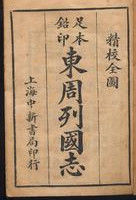 精校全圖
足本
鉛印
東周列國志
上海中新書局印行